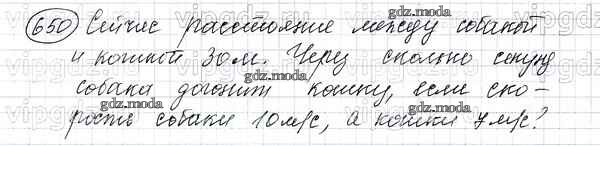 650 Сейчас расстояние между собакой
и кошкой 30м. Через сколько секунд
собака догонит кошку, если ско-
рость собаки 10м/с, а кошки 7м/с?
vipgdz
gdz.moda